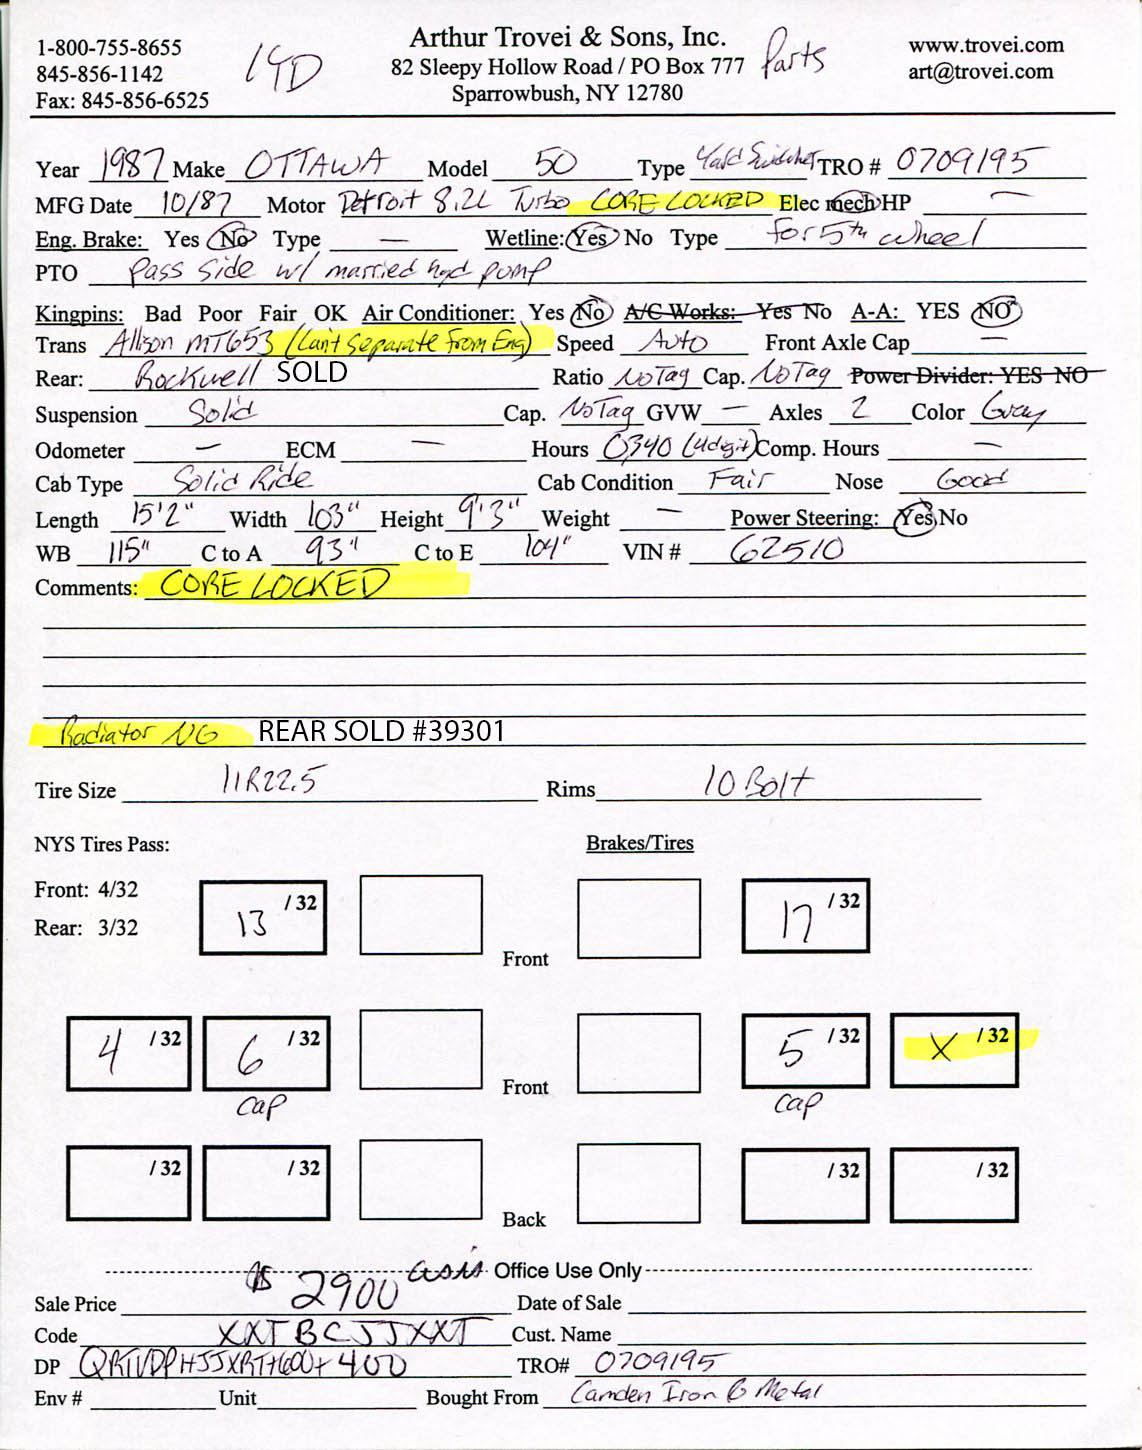 Arthur Trovei & Sons, Inc.
82 Sleepy Hollow Road / PO Box 777
Sparrowbush, NY 12780
1-800-755-8655
845-856-1142
Fax: 845-856-6525
Parts
www.trovei.com
art@trovei.com
Year 1987 Make OTTAWA Model 50 Type Yard Switcher TRO # 0709195
MFG Date 10/87 Motor Detroit 8.2L Turbo CORE LOCKED Elec mech HP —
Eng. Brake: Yes No Type — Wetline: Yes No Type for 5th wheel
PTO Pass Side w/ married hyd pump
Kingpins: Bad Poor Fair OK Air Conditioner: Yes No A/C Works: Yes No A-A: YES NO
Trans Allison MT653 (Can't Separate From Eng) Speed Auto Front Axle Cap —
Rear: Rockwell SOLD Ratio No Tag Cap. No Tag Power Divider: YES NO
Suspension Solid Cap. No Tag GVW — Axles 2 Color Gray
Odometer — ECM — Hours 0340 (4 digit) Comp. Hours —
Cab Type Solid Ride Cab Condition Fair Nose Good
Length 15'2" Width 103" Height 9'3" Weight — Power Steering: Yes No
WB 115" C to A 93" C to E 104" VIN # 62510
Comments: CORE LOCKED
Radiator NG REAR SOLD #39301
Tire Size 11R22.5 Rims 10 Bolt
NYS Tires Pass: Brakes/Tires
Front: 4/32
Rear: 3/32
13 /32 Front 17 /32
4 /32 6 /32 Front 5 /32 X /32
cap cap
/32 /32 Back /32 /32
Office Use Only
Sale Price $2900 as is Date of Sale
Code XXTBCJJXXT Cust. Name
DP 400 TRO# 0709195
Env # Unit Bought From Camden Iron & Metal